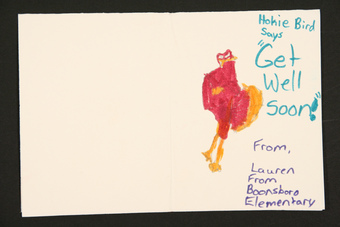 Hokie Bird
Says
"Get
Well
Soon!"
From,
Lauren
From
Boonsboro
Elementary